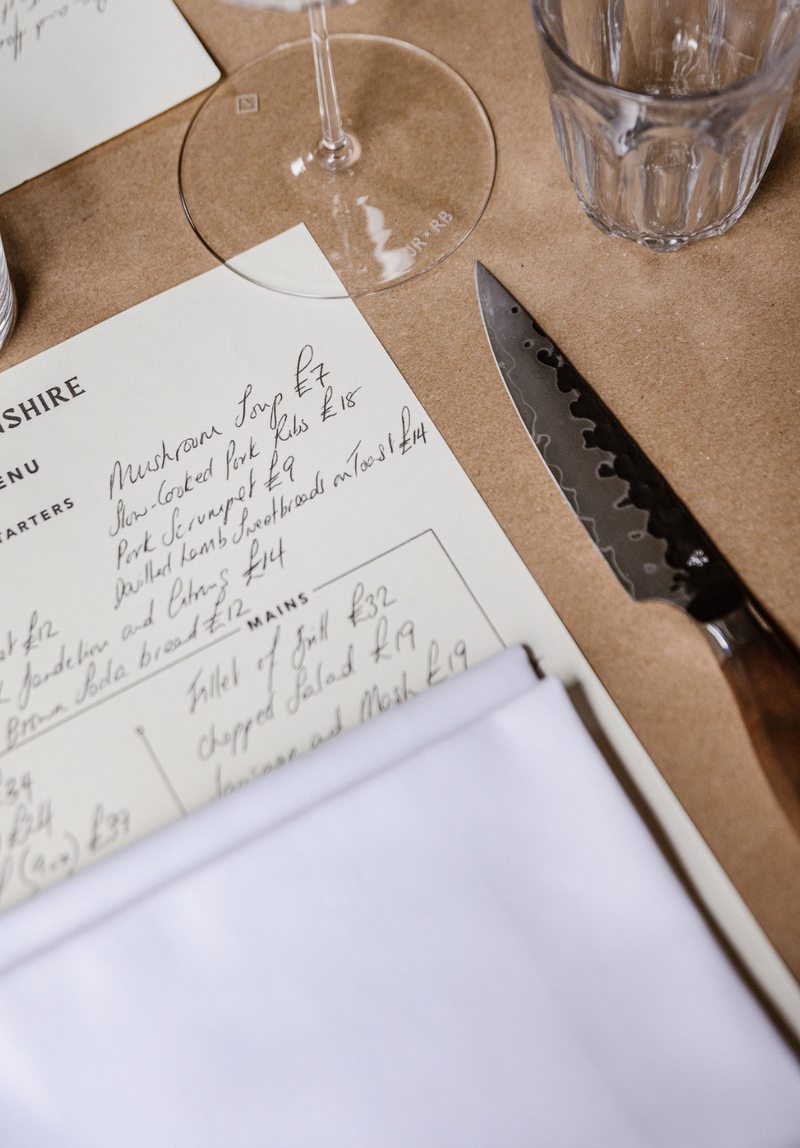 JR+RB
NSHIRE
ENU
TARTERS
Mushroom Soup £7
Slow-Cooked Pork Ribs £18
Pork Scrumpet £9
Devilled Lamb Sweetbreads on Toast £14
£12
Dandelion and Citrus £14
Brown Soda bread £12
MAINS
Fillet of Brill £32
Chopped Salad £19
and Mash £19
£34
£24
£39